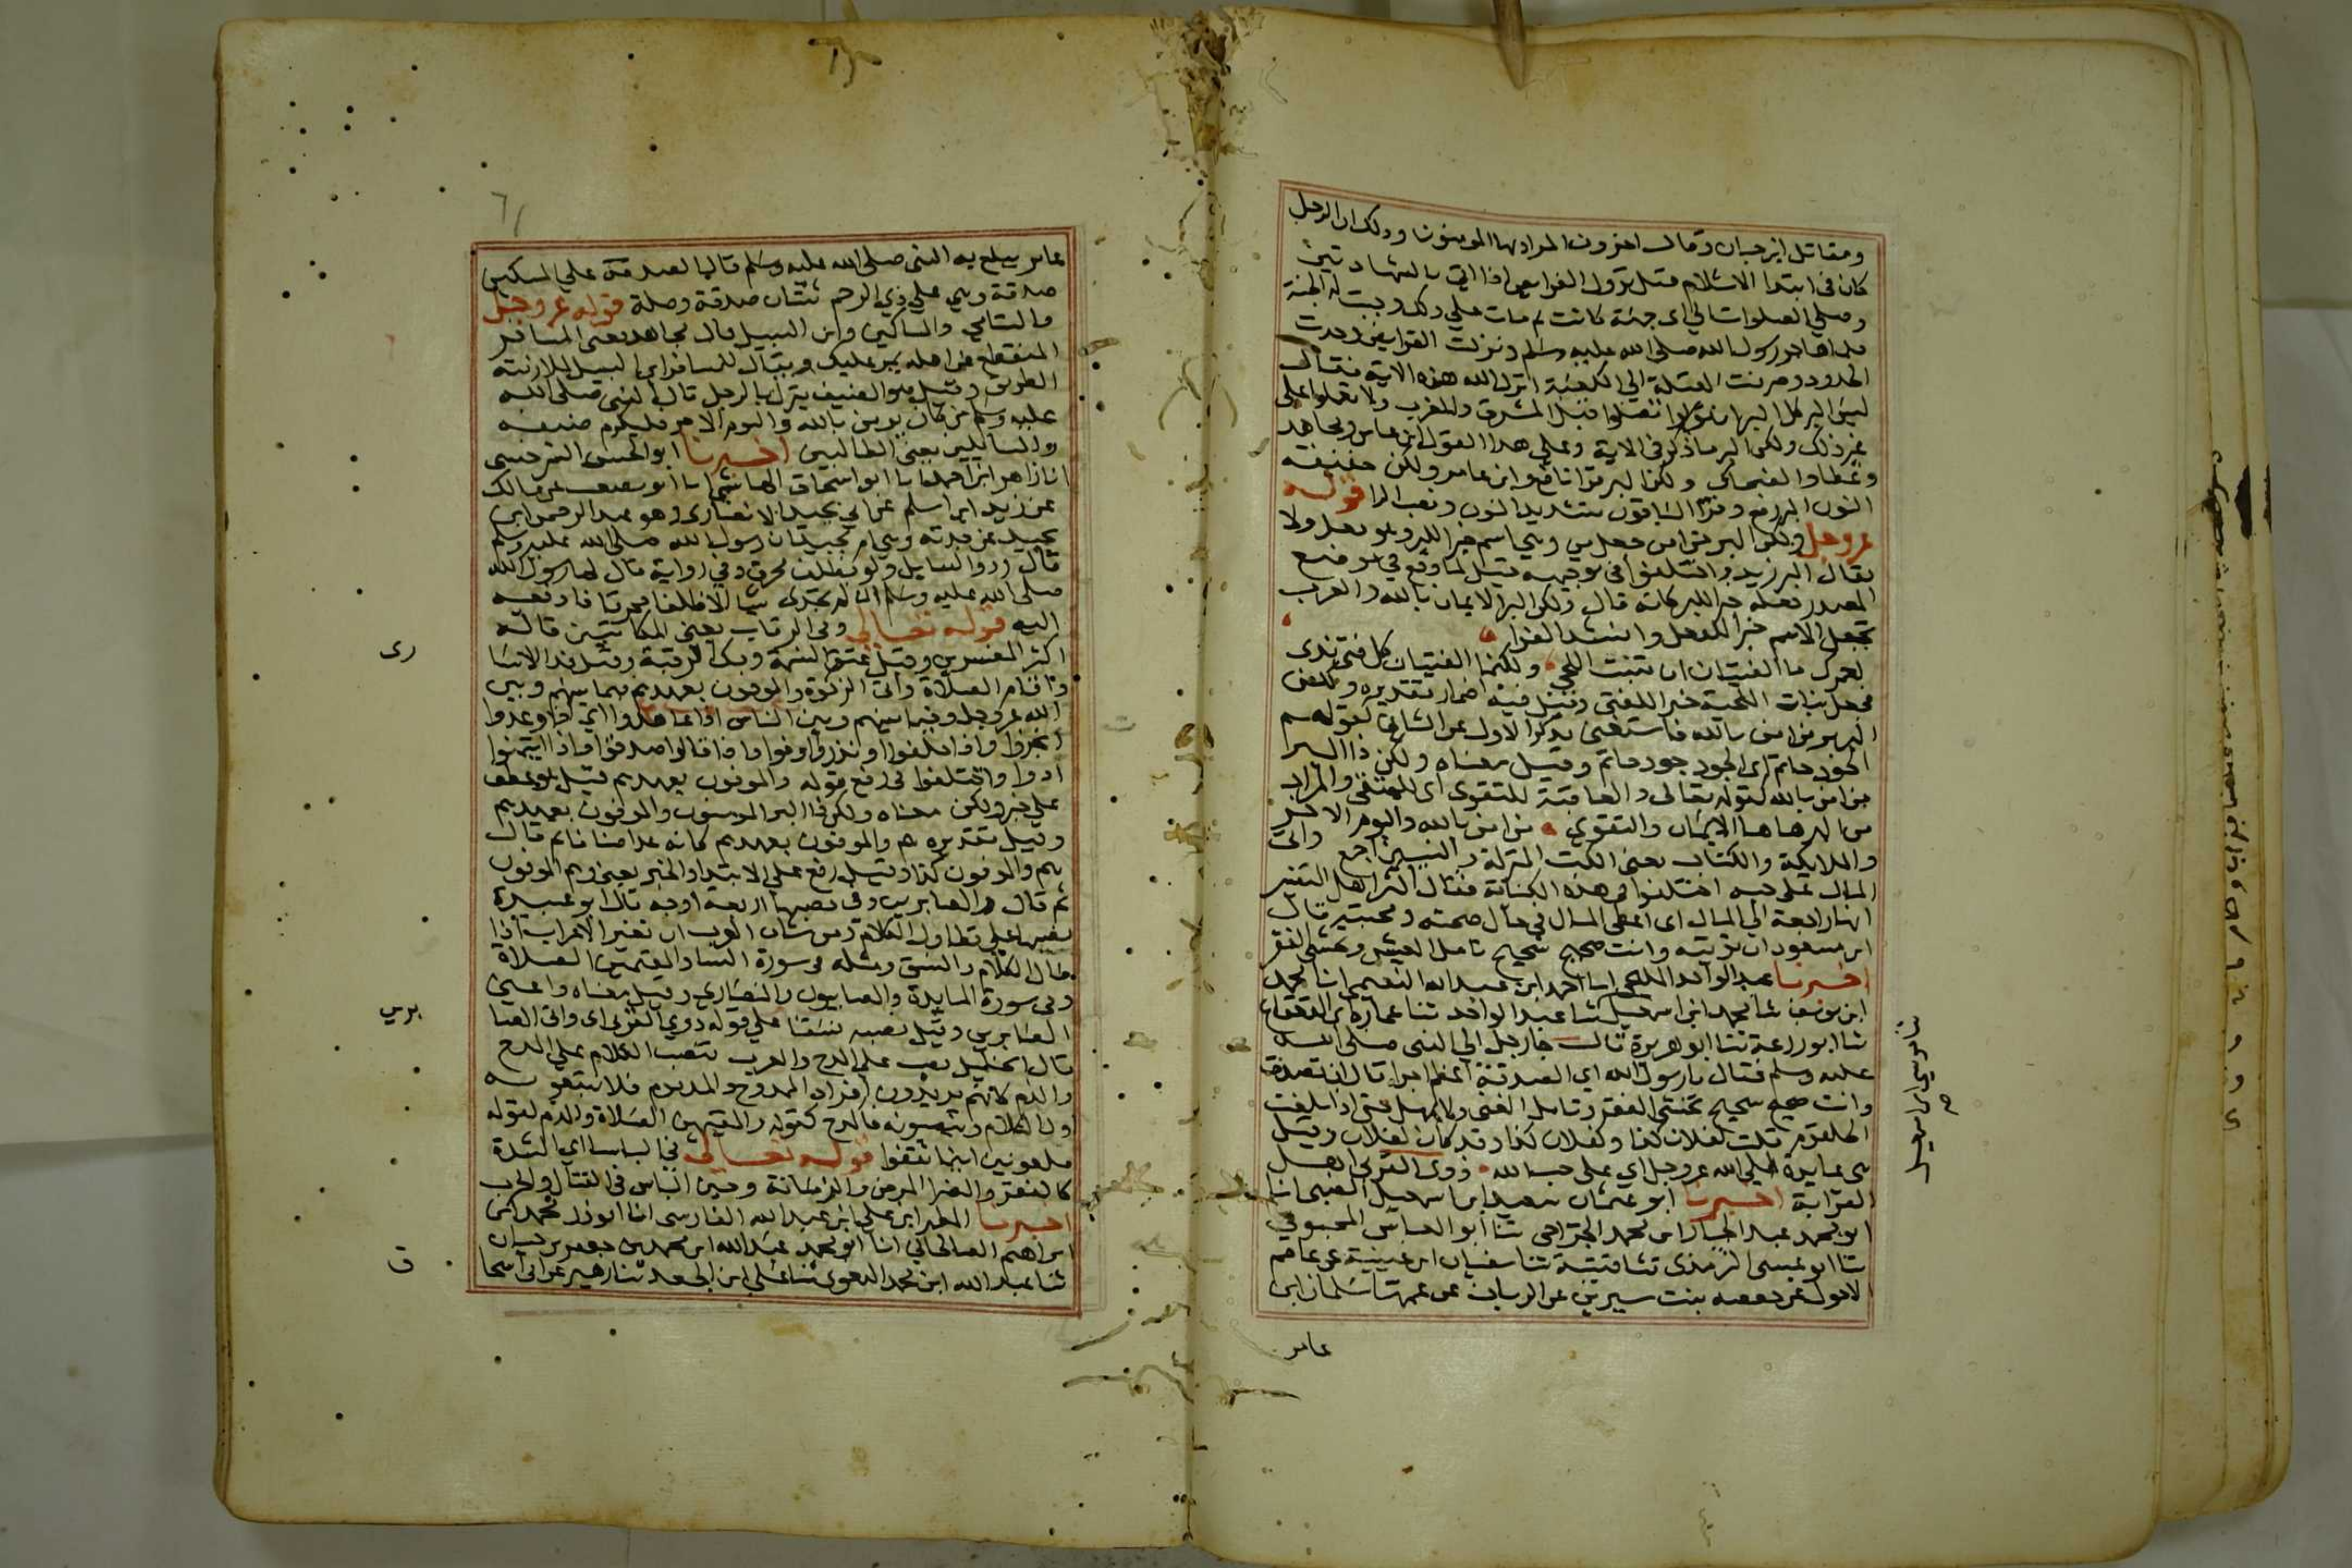 ومقاتل ابن حيان وقال اخرون المراد بها المومنون وذلك ان الرجل
كان في ابتدا الاسلام قبل نزول الفرايض اذا اتى بالشهادتين
وصلي الصلوات الي اى جهة كانت ثم مات علي ذلك وجبت له الجنة
فلما هاجر رسول الله صلى الله عليه وسلم ونزلت الفرايض وحدت
الحدود وصرفت القبلة الي الكعبة انزل الله هذه الاية فقال
ليس البر كل البر ان تولوا قبل المشرق والمغرب ولا تعملوا على
غير ذلك ولكن البر ما ذكر في الاية وعلي هذا القول ابن عباس ومجاهد
وعطا والضحاك ولكن البر قرا نافع وابن عامر ولكن خفيفة
النون البر رفع وقرا الباقون بتشديد النون ونصب الرا قوله
عز وجل ولكن البر من امن جعل من وهي اسم خبر للبر وهو فعل ولا
يقال البر زيد واختلفوا في توجيهه قيل لما وقع في موضع
المصدر جعله خبر اللبر كانه قال ولكن البر الايمان بالله والعرب
تجعل الاسم خبر الفعل وانشد الفرا
لعمرك ما الفتيان ان تنبت اللحي ولكنما الفتيان كل فتى ندى
فجعل نبات اللحية خبر اللفتى وقيل فيه اضمار تقديره ولكن
البر بر من امن بالله فاستغنى بذكر الاول عن الثاني كقولهم
الجود حاتم اى الجود جود حاتم وقيل معناه ولكن ذا البر
من امن بالله كقوله تعالى والعاقبة للتقوى اى للمتقى والمراد
من البر هاهنا الايمان والتقوي من امن بالله واليوم الاخر
والملايكة والكتاب يعنى الكتب المنزلة والنبيين اجمع واتى
المال على حبه اختلفوا في هذه الكناية فقال اكثر اهل التفسير
انها راجعة الي المال اى اعطى المال في حال صحته ومحبته قال
ابن مسعود ان توتيه وانت صحيح شحيح تامل العيش وتخشى الفقر
اخبرنا عبد الواحد المليحي انا احمد ابن عبد الله النعيمي انا محمد
ابن يوسف ثنا محمد ابن اسمعيل ثنا عبد الواحد ثنا عمارة ابن القعقاع
ثنا ابو زرعة ثنا ابو هريرة قال جا رجل الي النبى صلى الله
عليه وسلم فقال يا رسول الله اي الصدقة اعظم اجرا قال ان تصدق
وانت صحيح شحيح تخشى الفقر وتامل الغنى ولا تمهل حتى اذا بلغت
الحلقوم قلت لفلان كذا ولفلان كذا وقد كان لفلان وقيل
هي عايدة الي الله عز وجل اي على حب الله ذوى القربى اهل
القرابة اخبرنا ابو عثمان سعيد ابن اسمعيل الضبي انا
ابو محمد عبد الجبار ابن محمد الجراحى ثنا ابو العباس المحبوبي
ثنا ابو عيسى الترمذى ثنا قتيبة ثنا سفيان ابن عيينة عن عاصم
الاحول عن حفصه بنت سيرين عن الرباب عن عمها سلمان ابن
عامر
ثنا موسي ابن اسمعيل
صح
عامر يبلغ به النبى صلى الله عليه وسلم قال الصدقة علي المسكين
صدقة وهي على ذي الرحم ثنتان صدقة وصلة قوله عز وجل
واليتامي والمساكين وابن السبيل قال مجاهد يعنى المسافر
المنقطع عن اهله يمر عليك ويقال للمسافر ابن السبيل لملازمته
الطريق وقيل هو الضيف ينزل بالرجل قال النبى صلى الله
عليه وسلم من كان يومن بالله واليوم الاخر فليكرم ضيفه
والسايلين يعنى الطالبين اخبرنا ابو الحسن السرخسى
انا زاهر ابن احمد انا ابو اسحاق الهاشمي انا ابو مصعب عن مالك
عن زيد ابن اسلم عن ابي بجيد الانصارى وهو عبد الرحمن ابن
بجيد عن جدته وهي ام بجيد ان رسول الله صلى الله عليه وسلم
قال ردوا السايل ولو بظلف محرق وفي رواية قال لها رسول الله
صلى الله عليه وسلم ان لم تجدى شيا الا ظلفا محرقا فادفعيه
اليه قوله تعالي وفى الرقاب يعني المكاتبين قاله
اكثر المفسرين وقيل عتق النسمة وفك الرقبة وقيل فدا الاسا
رى
واقام الصلاة واتى الزكوة والموفون بعهدهم فيما بينهم وبين
الله عز وجل وفيما بينهم وبين الناس اذا عاهدوا اي اذا وعدوا
انجزوا واذا حلفوا او نذروا اوفوا واذا قالوا صدقوا واذا ايتمنوا
ادوا واختلفوا في رفع قوله والموفون بعهدهم قيل هو عطف
علي خبر ولكن معناه ولكن ذا البر المومنون والموفون بعهدهم
وقيل تقديره هم والموفون بعهدهم كانه عد اصنافا ثم قال
هم والموفون كذا وقيل رفع علي الابتدا والخبر يعني وهم الموفون
ثم قال والصابرين وفى نصبها اربعة اوجه قال ابو عبيدة
نصبها علي تطاول الكلام ومن شان العرب ان تغير الاعراب اذا
طال الكلام والنسق ومثله في سورة النسا والمقيمين الصلاة
وفى سورة المايدة والصابيون والنصارى وقيل معناه واعنى
الصابرين وقيل نصبه نسقا علي قوله ذوي القربى اى واتى الصا
برين
قال الخليل نصب علي المدح والعرب تنصب الكلام علي المدح
والذم كانهم يريدون افراد الممدوح والمذموم فلا يتبعونه
اول الكلام وينصبونه فالمدح كقوله والمقيمين الصلاة والذم كقوله
ملعونين اينما ثقفوا قوله تعالى في الباسا اي الشدة
كالفقر والضرا المرض والزمانة وحين الباس في القتال والحرب
اخبرنا المطهر ابن علي ابن عبد الله الفارسى انا ابو ذر محمد ابن
ابراهيم الصالحانى انا ابو محمد عبد الله ابن محمد بن جعفر بن حيان
ثنا عبد الله ابن محمد البغوى ثنا علي ابن الجعد ثنا زهير عن ابى اسحا
ق